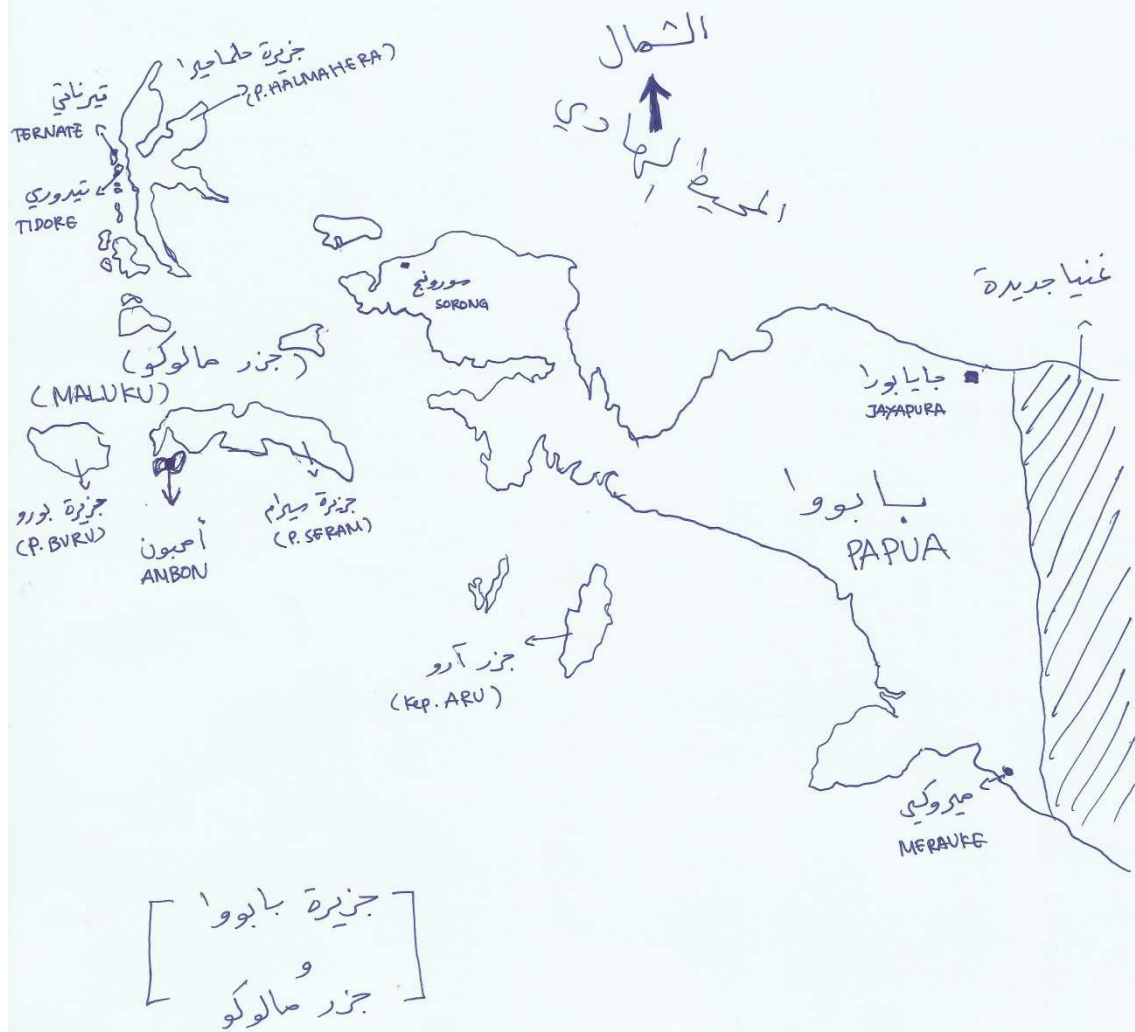 الشمال
المحيط الهادي
جزيرة حلماحيرا
(P. HALMAHERA)
تيرناتي
TERNATE
تيدوري
TIDORE
سورونج
SORONG
غنيا جديدة
(جزر مالوكو)
(MALUKU)
جايابورا
JAYAPURA
بابووا
PAPUA
جزيرة بورو
(P. BURU)
أمبون
AMBON
جزيرة سيرام
(P. SERAM)
جزر آرو
(Kep. ARU)
ميروكي
MERAUKE
جزيرة بابووا
و
جزر مالوكو